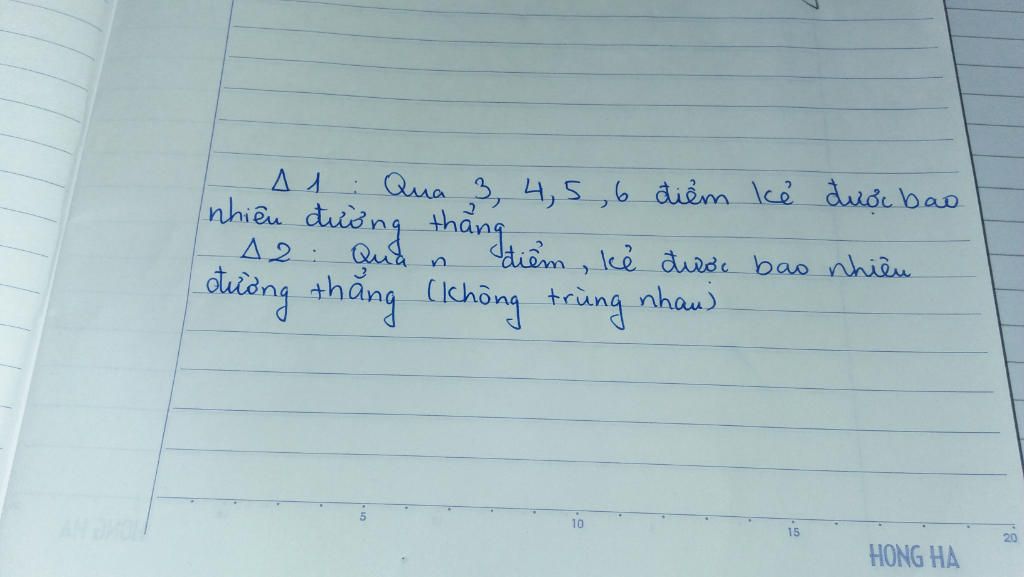 Δ 1 : Qua 3, 4, 5, 6 điểm kẻ được bao
nhiêu đường thẳng
Δ 2 : Qua n điểm, kẻ được bao nhiêu
đường thẳng (không trùng nhau)
5 10 15 20
HONG HA